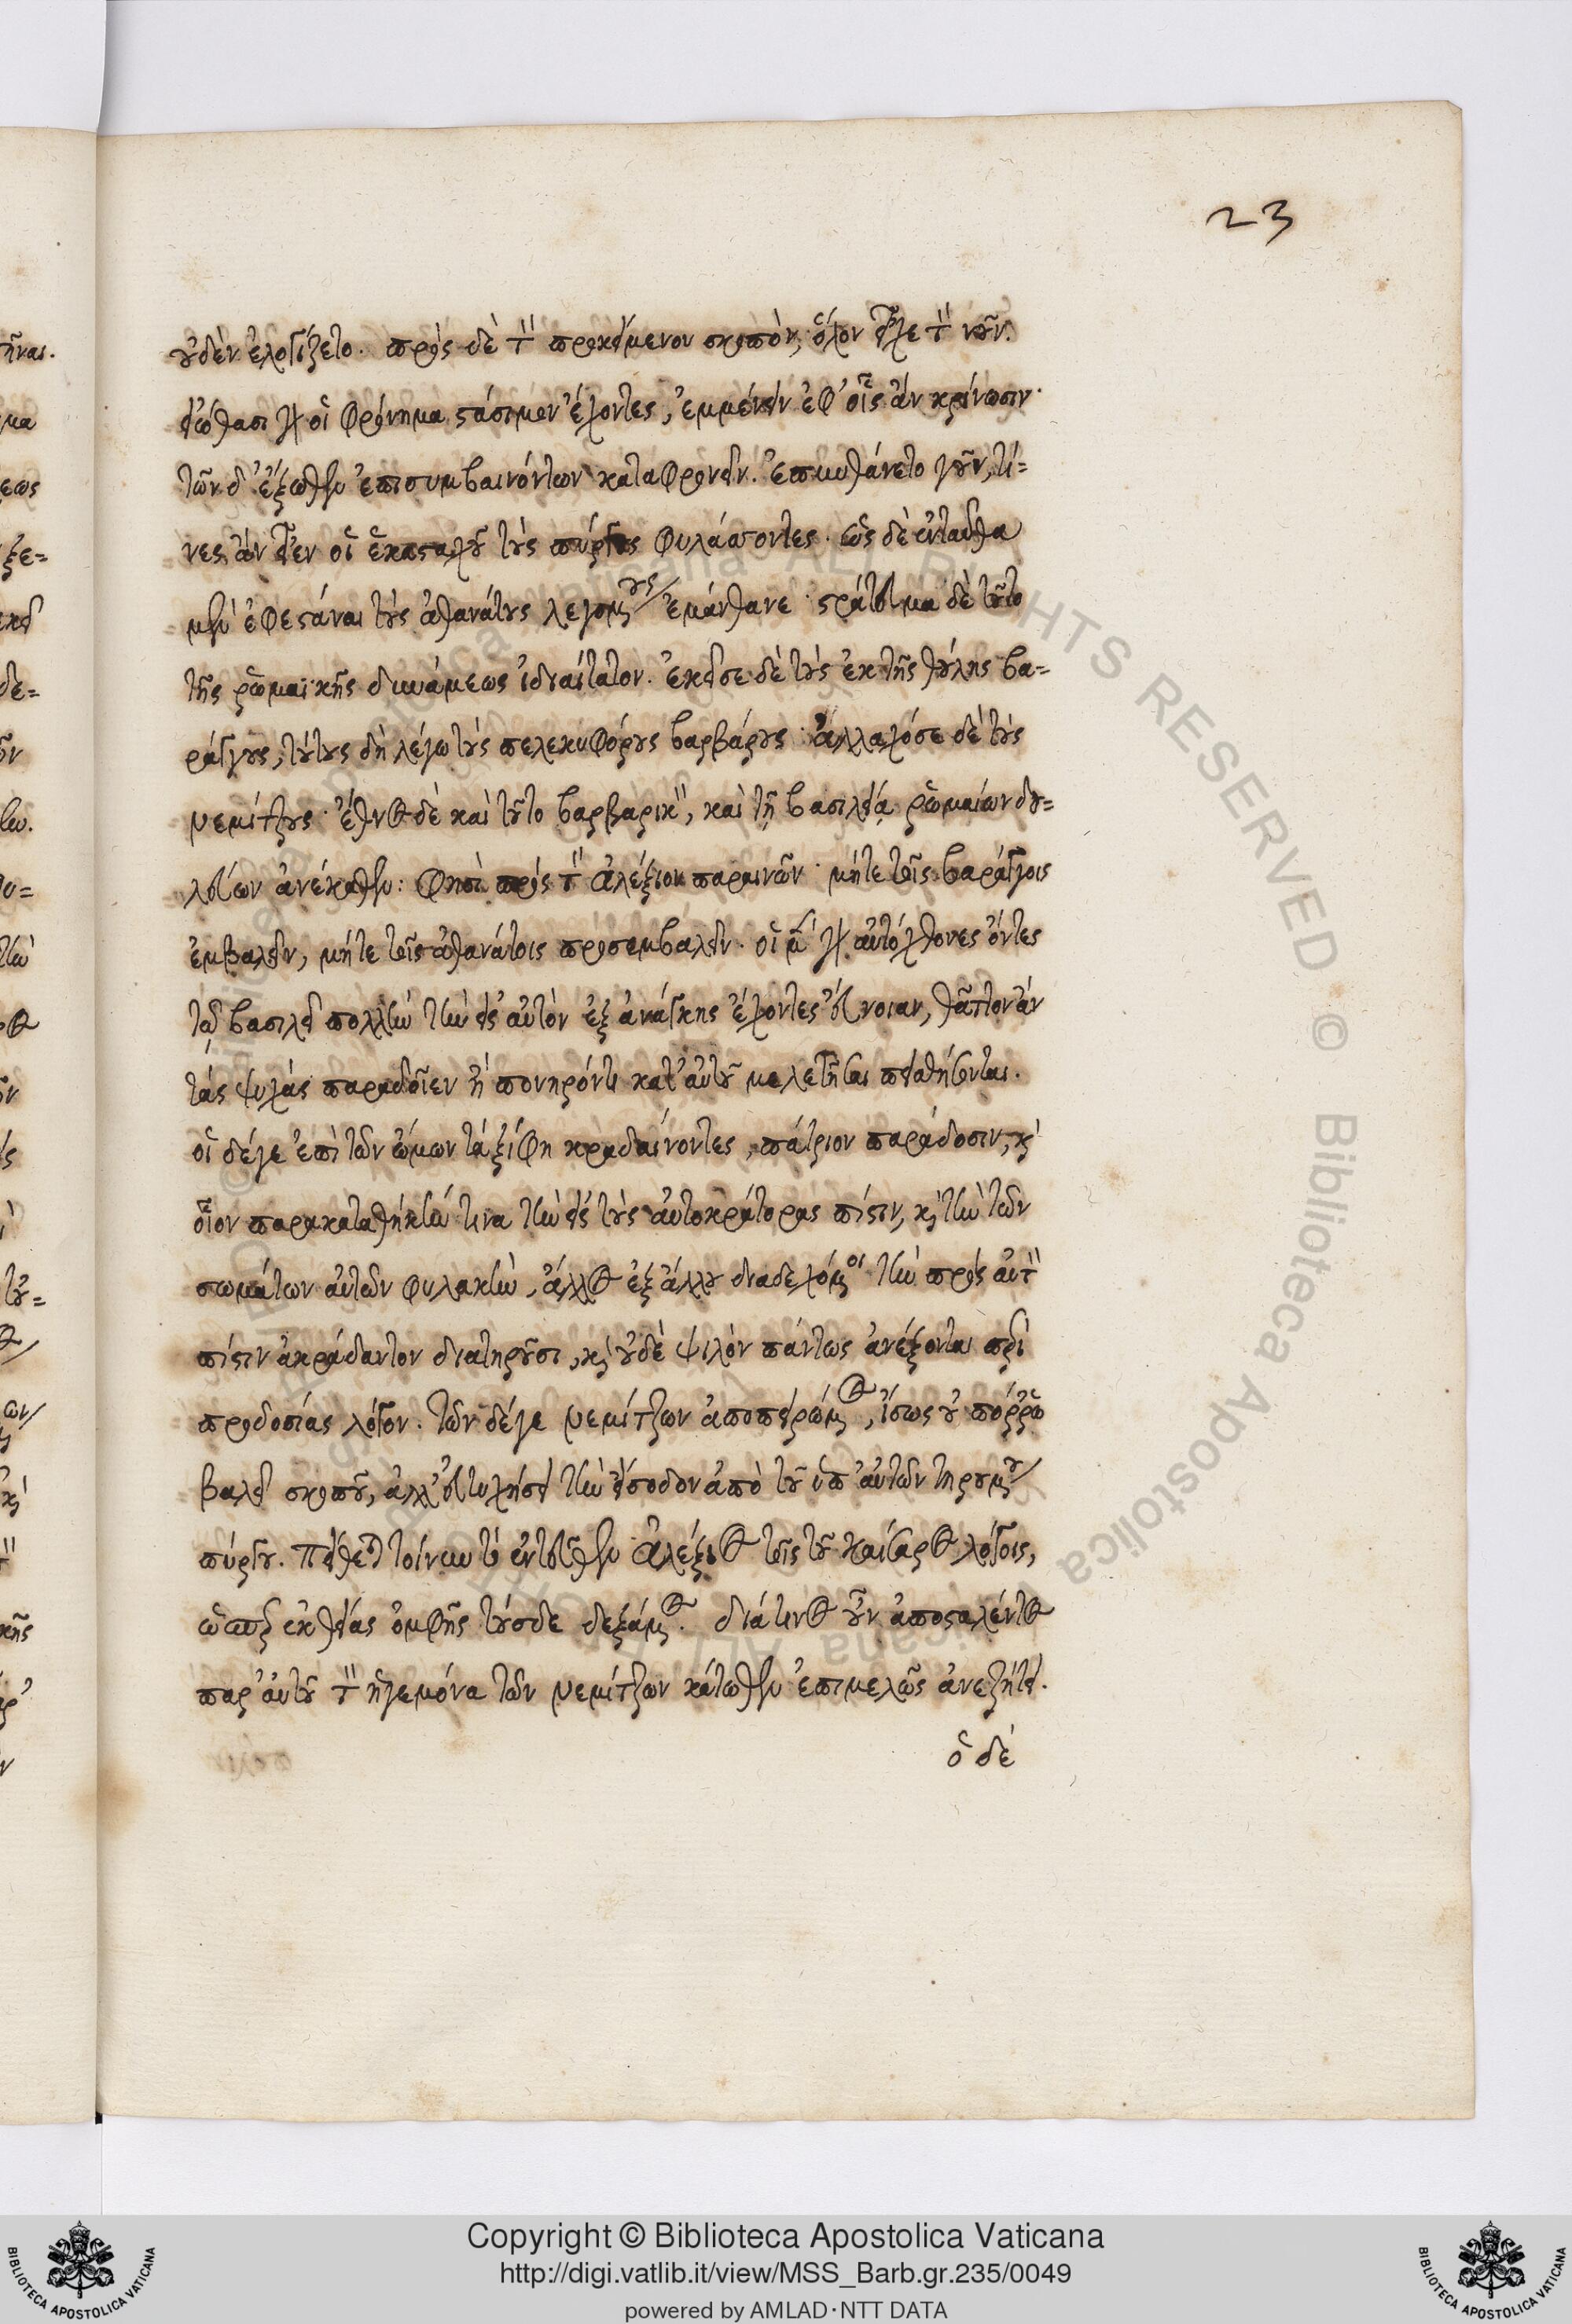 23
οὐδὲν ἐλογίζετο. πρὸς δὲ τὸν προκείμενον σκοπὸν, ὅλον εἶχε τὸν νοῦν.
εἰώθασι γὰρ οἱ φρόνημα στάσιμον ἔχοντες, ἐμμένειν ἐφ' οἷς ἂν κρίνωσιν·
τῶν δ' ἔξωθεν ἐπισυμβαινόντων καταφρονεῖν. ἐπυνθάνετο γοῦν, τί=
νες ἂν εἶεν οἱ ἑκασταχοῦ τοὺς πύργους φυλάσσοντες. ὡς δὲ ἐνταῦθα
μὲν ἐφεστάναι τοὺς ἀθανάτους λεγομένους ἐμάνθανε· στράτευμα δὲ τοῦτο
τῆς ῥωμαϊκῆς δυνάμεως ἰδιαίτατον. ἐκεῖσε δὲ τοὺς ἐκ τῆς θούλης βα=
ράγγους, τούτους δὴ λέγω τοὺς πελεκυφόρους βαρβάρους· ἀλλαχόσε δὲ τοὺς
νεμίτζους· ἔθνος δὲ καὶ τοῦτο βαρβαρικὸν, καὶ τῇ βασιλείᾳ ῥωμαίων δου=
λεῦον ἀνέκαθεν: φησὶ πρὸς τὸν ἀλέξιον παραινῶν· μήτε τοῖς βαράγγοις
ἐμβαλεῖν, μήτε τοῖς ἀθανάτοις προσεμβαλεῖν. οἱ μὲν γὰρ αὐτόχθονες ὄντες
τῷ βασιλεῖ πολλὴν τὴν εἰς αὐτὸν ἐξ ἀνάγκης ἔχοντες εὔνοιαν, θᾶττον ἂν
τὰς ψυχὰς παραδοῖεν ἢ πονηρόν τι κατ' αὐτοῦ μελετῆσαι πεισθήσονται.
οἱ δέ γε ἐπὶ τῶν ὤμων τὰ ξίφη κραδαίνοντες, πάτριον παράδοσιν, καὶ
οἷον παρακαταθήκην τινὰ τὴν εἰς τοὺς αὐτοκράτορας πίστιν, καὶ τὴν τῶν
σωμάτων αὐτῶν φυλακὴν, ἄλλος ἐξ ἄλλου διαδεχόμενοι τὴν πρὸς αὐτὸν
πίστιν ἀκράδαντον διατηροῦσι, καὶ οὐδὲ ψιλὸν πάντως ἀνέξονται περὶ
προδοσίας λόγον. τῶν δέ γε νεμίτζων ἀποπειρώμενος, ἴσως οὐ πόῤῥω
βαλεῖ σκοποῦ, ἀλλ' εὐτυχήσει τὴν εἴσοδον ἀπὸ τοῦ ὑπ' αὐτῶν τηρουμένου
πύργου. πείθεται τοίνυν τὸ ἐντεῦθεν ἀλέξιος τοῖς τοῦ καίσαρος λόγοις,
ὥσπερ ἐκ θείας ὀμφῆς τούσδε δεξάμενος. διά τινος οὖν ἀποσταλέντος
παρ' αὐτοῦ τὸν ἡγεμόνα τῶν νεμίτζων κάτωθεν ἐπιμελῶς ἀνεζήτει.
ὁ δὲ
Copyright © Biblioteca Apostolica Vaticana
http://digi.vatlib.it/view/MSS_Barb.gr.235/0049
powered by AMLAD·NTT DATA